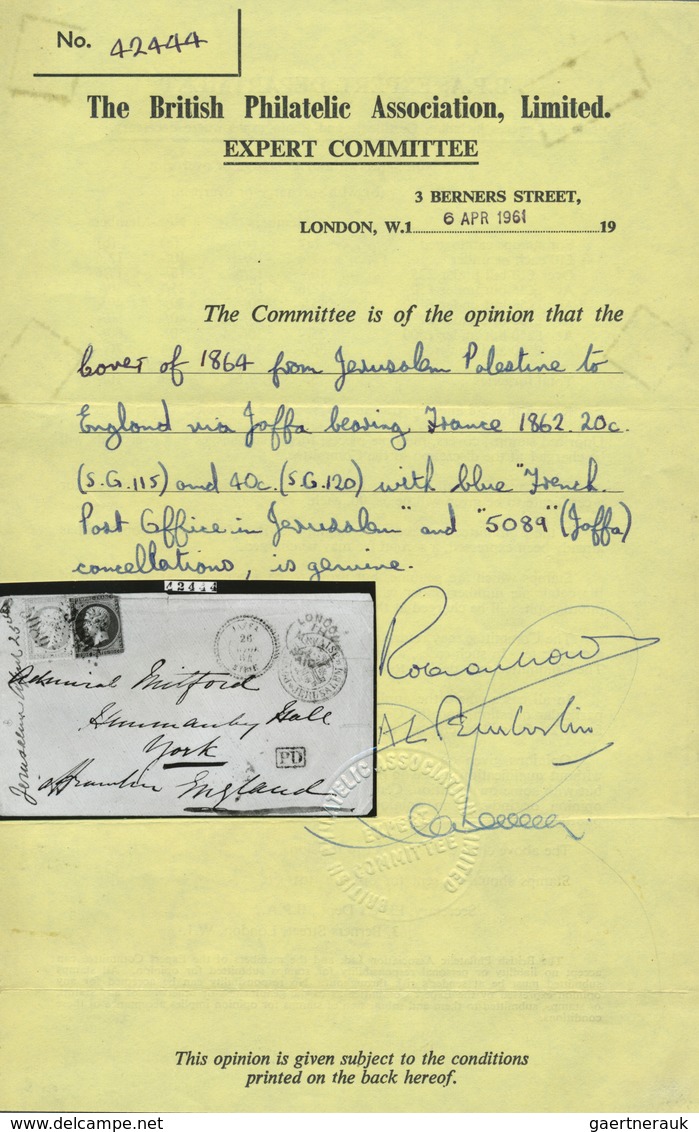 No. 42444
The British Philatelic Association, Limited.
EXPERT COMMITTEE
3 BERNERS STREET,
LONDON, W.1 6 APR 1961 19
The Committee is of the opinion that the
Cover of 1864 from Jerusalem Palestine to
England via Jaffa bearing France 1862. 20c.
(S.G.115) and 40c. (S.G.120) with blue "French
Post Office in Jerusalem" and "5089" (Jaffa)
cancellations, is genuine.
42444
26
LONDON
JERUSALEM
Admiral Mitford
Hunmanby Hall
York
PD
England
Jerusalem
PHILATELIC ASSOCIATION LIMITED
EXPERT
COMMITTEE
BRITISH
This opinion is given subject to the conditions
printed on the back hereof.
gaertnerauk